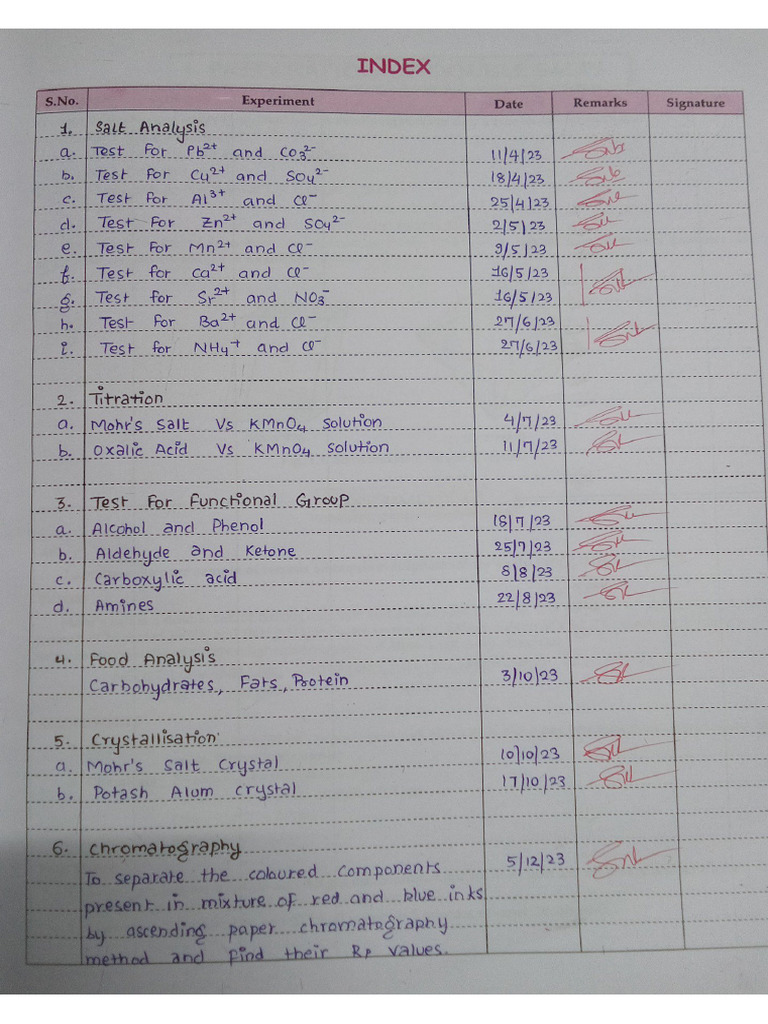 INDEX
S.No. Experiment Date Remarks Signature
1. Salt Analysis
a. Test for Pb²⁺ and CO₃²⁻ 11/4/23
b. Test for Cu²⁺ and SO₄²⁻ 18/4/23
c. Test for Al³⁺ and Cl⁻ 25/4/23
d. Test for Zn²⁺ and SO₄²⁻ 2/5/23
e. Test for Mn²⁺ and Cl⁻ 9/5/23
f. Test for Ca²⁺ and Cl⁻ 16/5/23
g. Test for Sr²⁺ and NO₃⁻ 16/5/23
h. Test for Ba²⁺ and Cl⁻ 27/6/23
i. Test for NH₄⁺ and Cl⁻ 27/6/23
2. Titration
a. Mohr's Salt Vs KMnO₄ solution 4/7/23
b. Oxalic Acid Vs KMnO₄ solution 11/7/23
3. Test For Functional Group
a. Alcohol and Phenol 18/7/23
b. Aldehyde and Ketone 25/7/23
c. Carboxylic acid 8/8/23
d. Amines 22/8/23
4. Food Analysis
Carbohydrates, Fats, Protein 3/10/23
5. Crystallisation
a. Mohr's Salt Crystal 10/10/23
b. Potash Alum Crystal 17/10/23
6. Chromatography 5/12/23
To separate the coloured components
present in mixture of red and blue inks
by ascending paper chromatography
method and find their RF values.